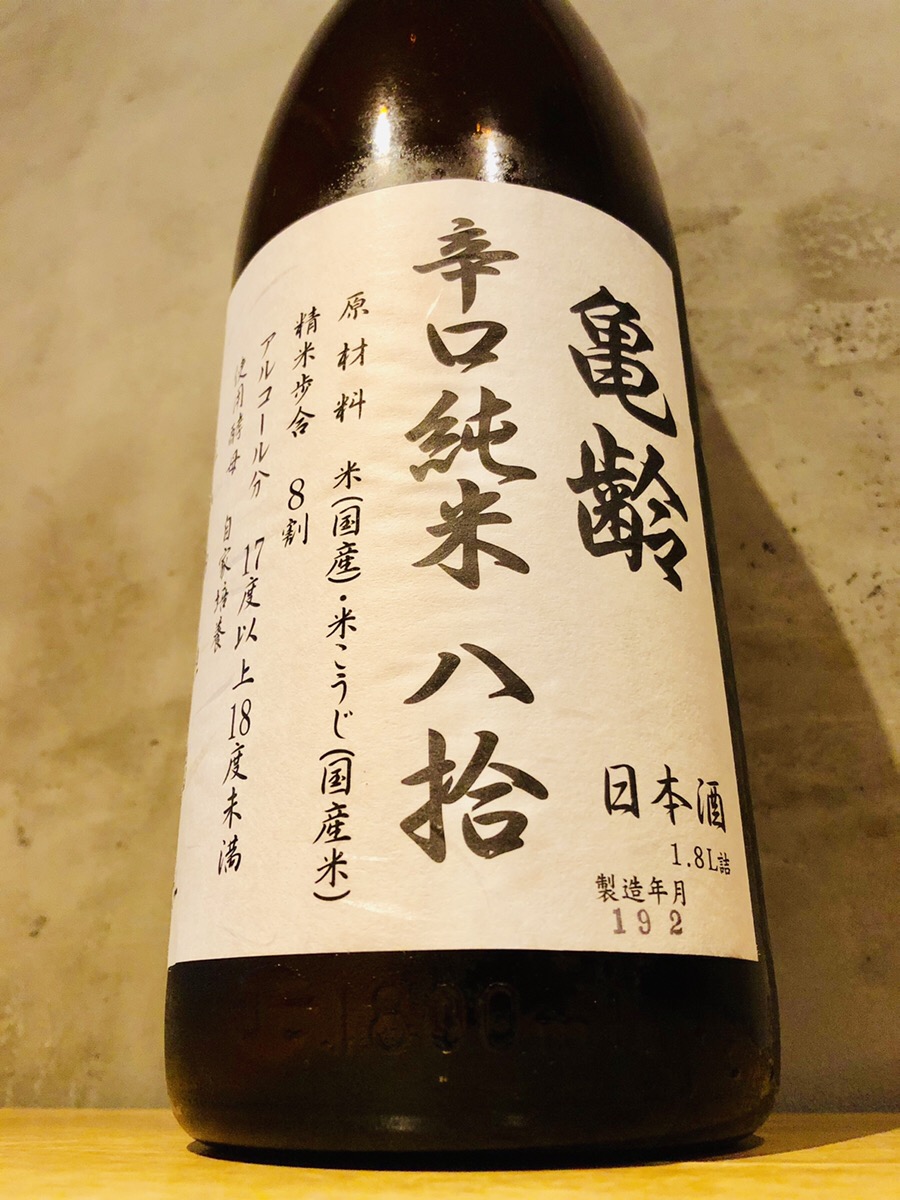 亀齢
日本酒
1.8L詰
製造年月
19 2
辛口純米 八拾
原材料 米(国産)・米こうじ(国産米)
精米歩合 8割
アルコール分 17度以上18度未満
使用酵母 自家培養
1800